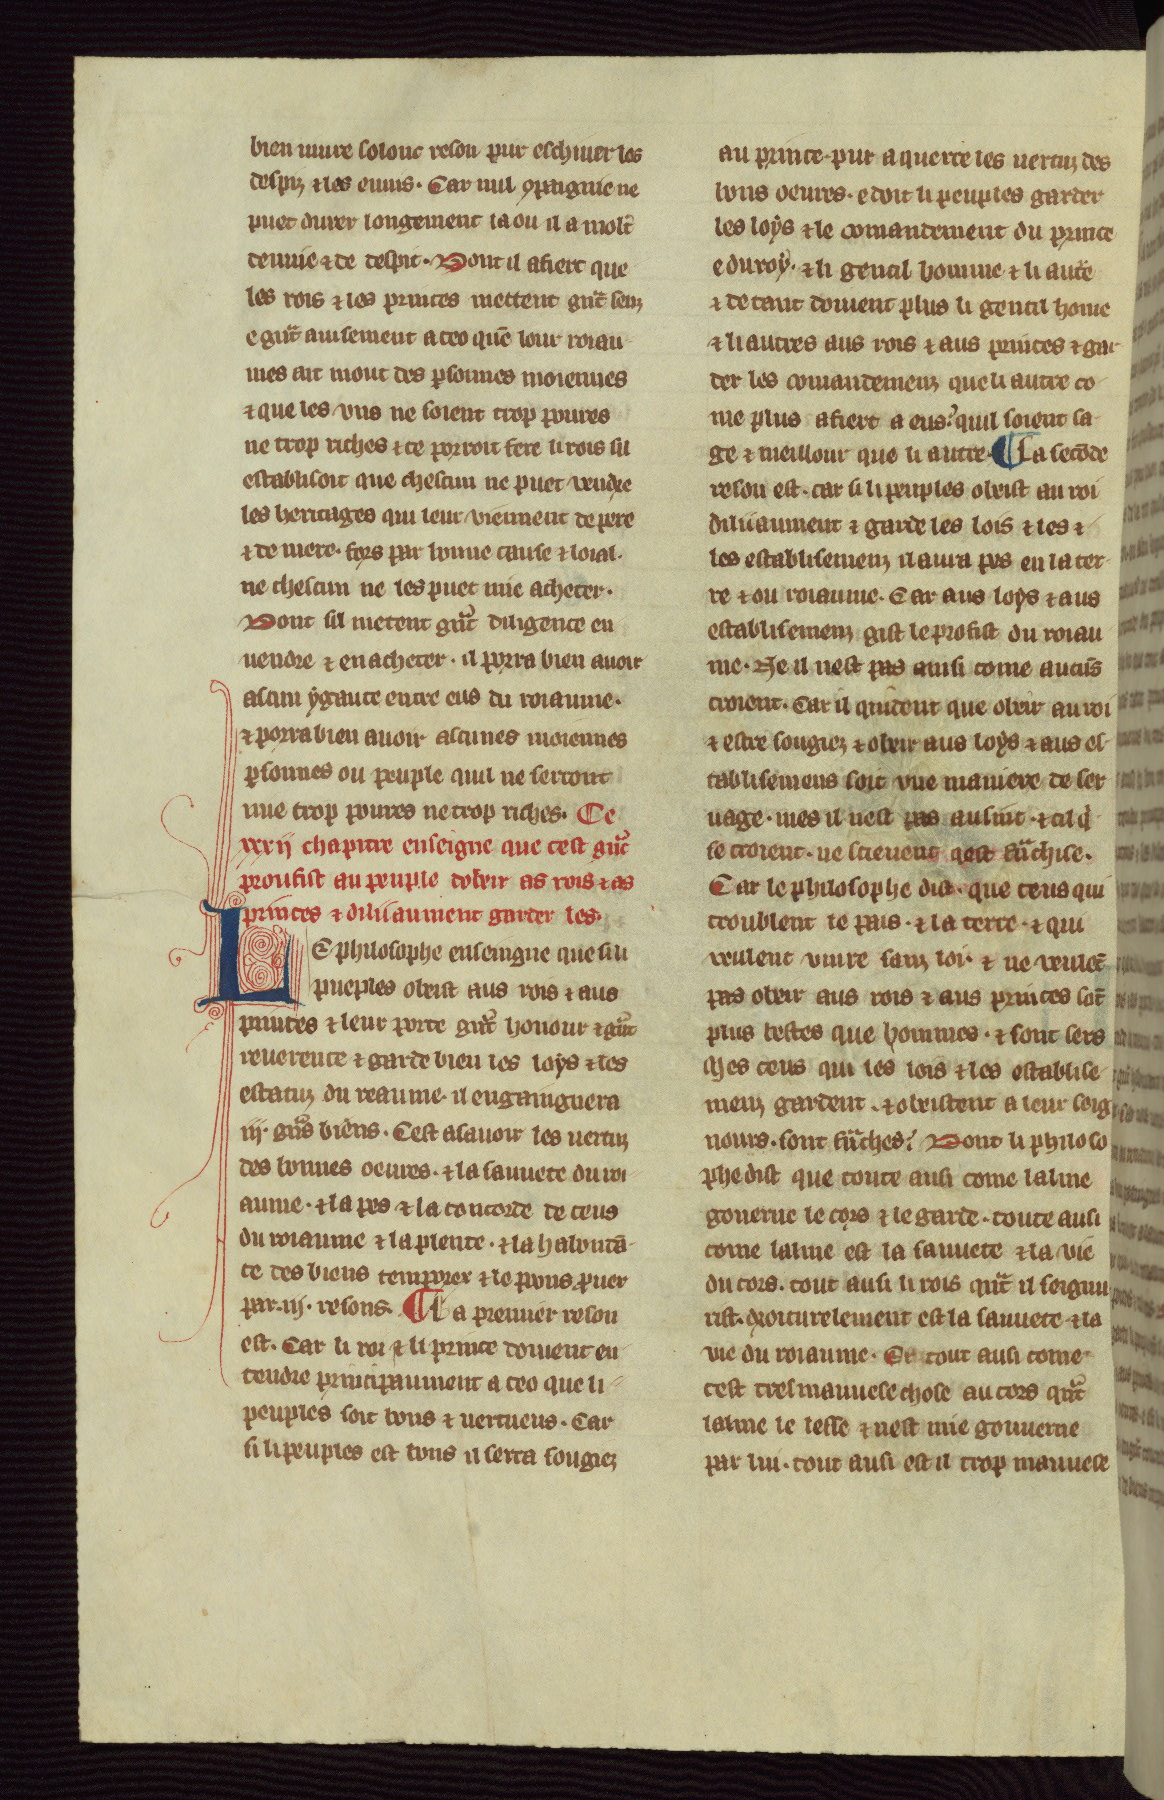 bien viure solonc reson pur eschiuer les
despiz ⁊ les enuis. Car nul ꝯpaignie ne
puet durer longement la ou il a molt̃
denuie ⁊ de despit. Dont il afiert que
les rois ⁊ les princes mettent gr̃nt senz
e gr̃nt auisement a ceo quẽ lour roiau
mes ait mout des ꝑsonnes moiennes
⁊ que les vns ne soient trop poures
ne trop riches ⁊ ce porroit fere li rois sil
establisoit que chescun ne puet vendre
les heritages qui leur viennent de pere
⁊ de mere. fors par bonne cause ⁊ loial.
ne chescun ne les puet mie acheter.
Dont sil metent gr̃nt diligence en
uendre ⁊ en acheter. il porra bien auoir
alcun ygaute entre eus du roiaume.
⁊ porra bien auoir alcunes moiennes
ꝑsonnes ou peuple quil ne seront
mie trop poures ne trop riches. Ce
xxxij chapitre enseigne que cest gr̃nt
proufist au peuple dobeir as rois ⁊ as
princes ⁊ diliiaument garder les.
LE philosophe enseingne que si li
pueples obeist aus rois ⁊ aus
princes ⁊ leur porte gr̃nt honour ⁊ gr̃nt
reuerence ⁊ garde bien les loys ⁊ les
estatuz du reaume. il engaingnera
iij. gr̃ns biens. Cest asauoir les uertuz
des bonnes oeures. ⁊ la sauuete du roi
aume. ⁊ la pes ⁊ la concorde de ceus
du roiaume ⁊ la plente. ⁊ la habundã
ce des biens temporex ⁊ le poons puer
par .iij. resons. ¶ La premier reson
est. Car li roi ⁊ li prince doiuent en
tendre principaument a ceo que li
peuples soit bons ⁊ uertueus. Car
si li peuples est bons il serra sougiez
au prince. pur aquerre les uertuz des
bons oeures. e doit li peuples garder
les loys ⁊ le comandement du prince
e du roy. ⁊ li gentil homme ⁊ li autre
⁊ de tant doiuent plus li gentil home
⁊ li autres aus rois ⁊ aus princes ⁊ gar
der les comandemenz que li autre co
me plus afiert a eus. quil soient sa
ge ⁊ meillour que li autre. ¶ La secõde
reson est. car si li peuples obeist au roi
diliiaument ⁊ garde les lois ⁊ les ⁊
les establisemenz il aura pes en la ter
re ⁊ ou roiaume. Car aus loys ⁊ aus
establisemenz gist le profist du roiau
me. Ne il nest pas ainsi come aucũs
croient. Car il quident que obeir au roi
⁊ estre sougiez ⁊ obeir aus loys ⁊ aus es
tablisemens soit vne maniere de ser
uage. mes il nest pas ausint. ⁊ cil q̃
se croient. ne scieuent qest frãchise.
Car le philosophe dist. que ceus qui
troublent le pais. ⁊ la terre. ⁊ qui
veulent viure sanz loi. ⁊ ne veulẽt
pas obeir aus rois ⁊ aus princes sõt
plus bestes que hommes. ⁊ sont sers
Mes ceus qui les lois ⁊ les establise
menz gardent. ⁊ obeissent a leur seig
nours. sont frãches. Dont li philoso
phe dist que toute ausi come lalme
gouerne le cors ⁊ le garde. toute ausi
come lalme est la sauuete ⁊ la vie
du cors. tout ausi li rois qñt il seignu
rist. droiturelement est la sauuete ⁊ la
vie du roiaume. Et tout ausi come
cest tresmauuese chose au cors qñt
lalme le lesse ⁊ nest mie gouuerne
par lui. tout ausi est il trop mauuese